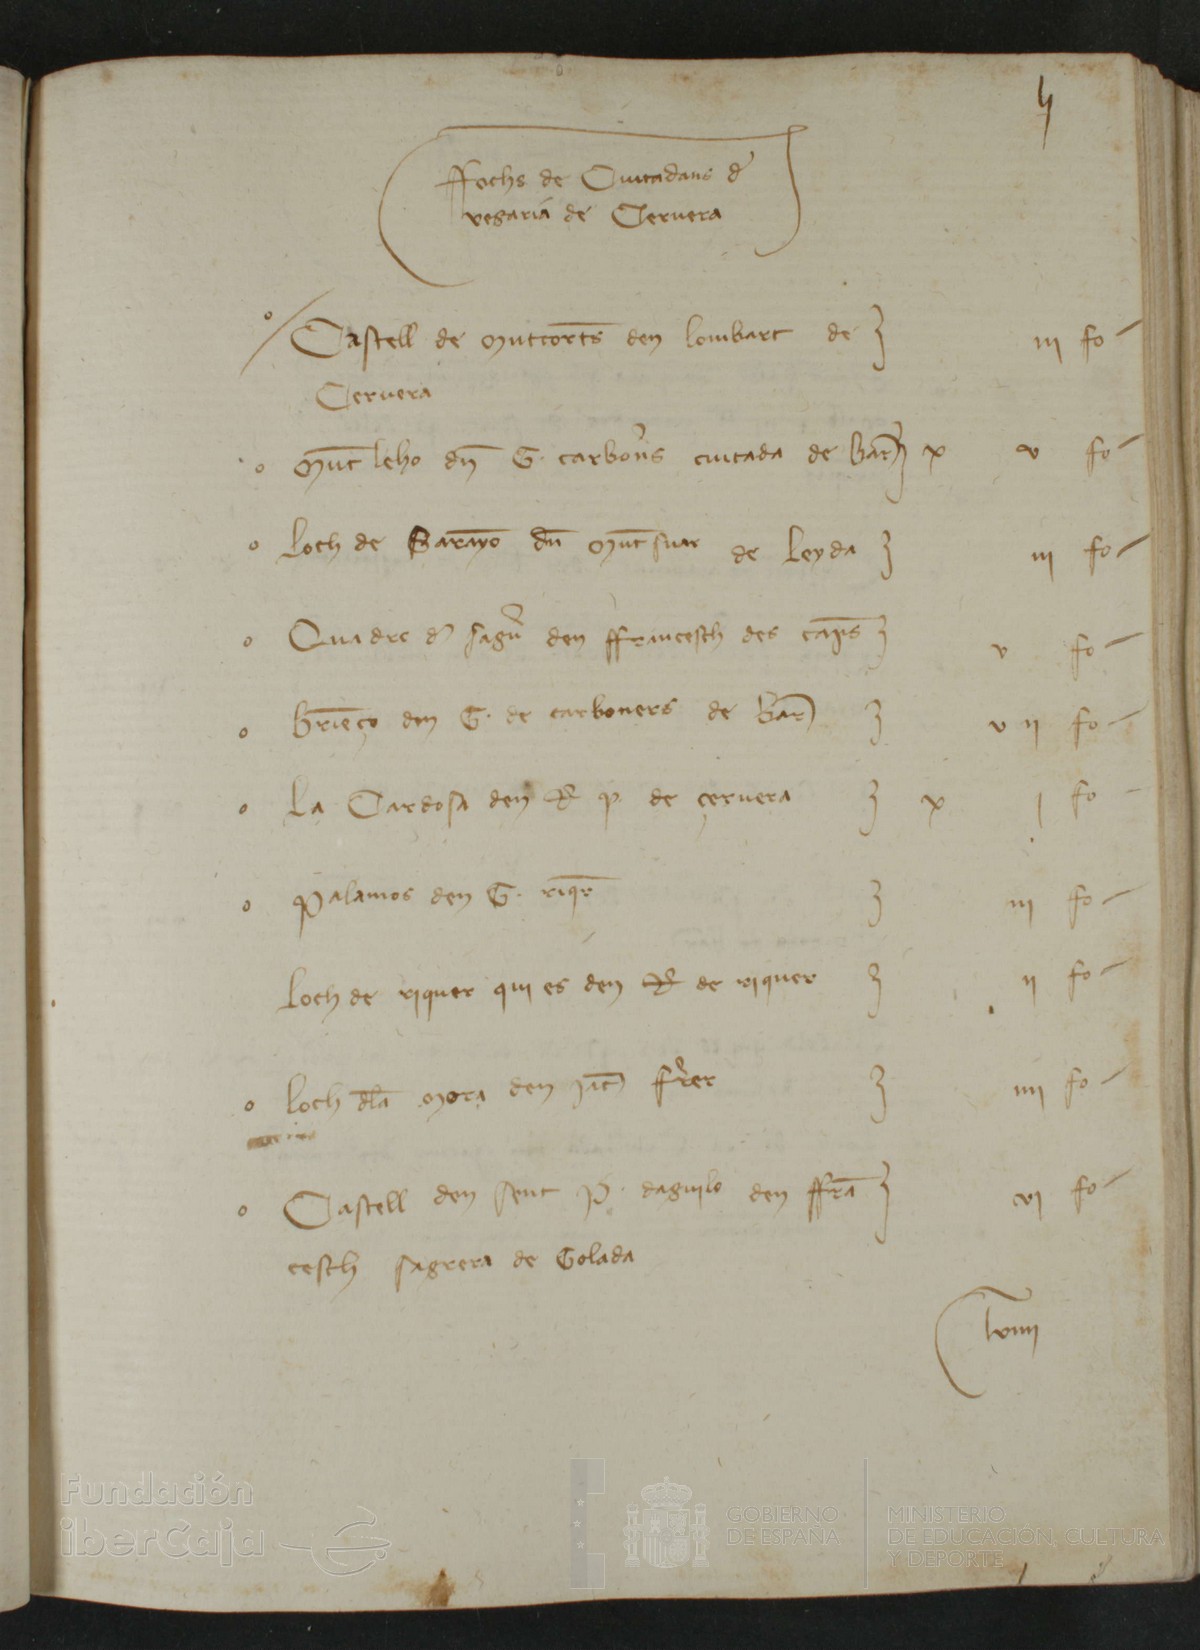 ffochs de Ciutadans d
vegaria de Cervera
Castell de Muntcortes den lombart de iii fo
Cervera
Munt leho dun G. carbons ciutada de Barn x v fo
loch de Sarayo dun Muntsuar de leyda iii fo
Quadre d sagr den ffrancesch des caps v fo
brieço den G. de carboners de Barn v ii fo
La Cardosa den R p. de çervera x i fo
Palamos den G. riqr iii fo
loch de riquer qui es den R de riquer ii fo
loch dla Mora den Jac frer iiii fo
Castell den sent P. daguilo den ffra vi fo
cesch sagrera de Golada
lviiii
Fundación
iberCaja
GOBIERNO
DE ESPAÑA
MINISTERIO
DE EDUCACIÓN, CULTURA
Y DEPORTE